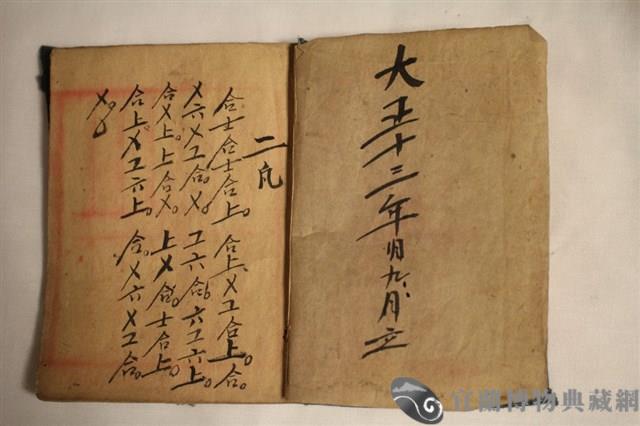 大正十三年旧九月立
二凡
合士合士合上。合上乂工合上。合。
乂六乂工合。乂。工六合。六工六上。
合乂。上。上合乂。上乂合。士合上。
合上。乂工六上。合。乂六乂工合。
乂。
宜蘭博物典藏網